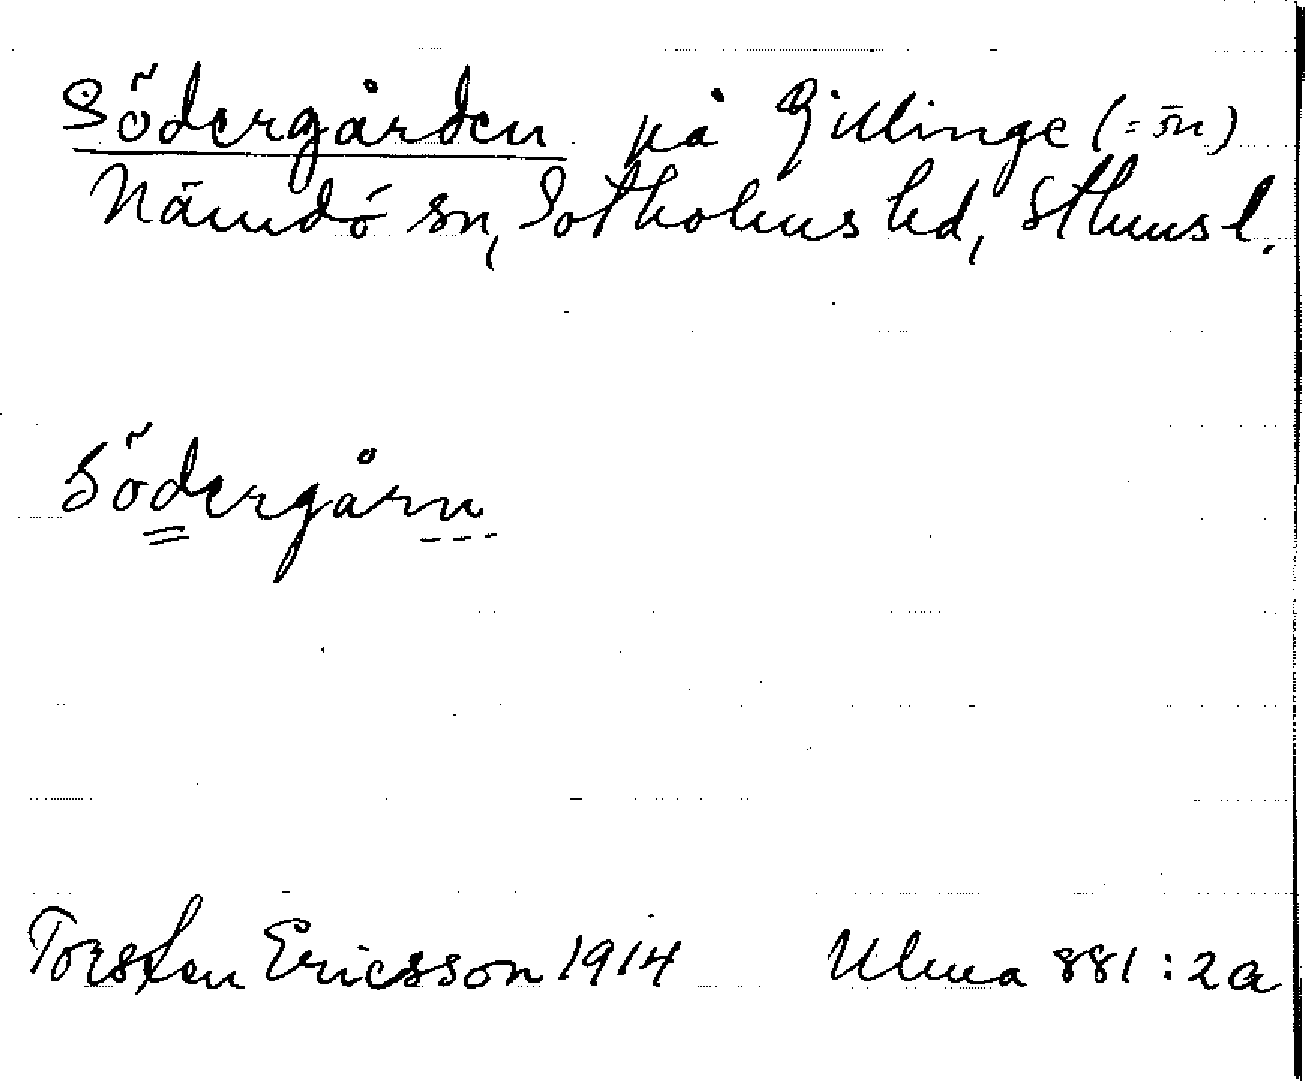 Södergården på Gillinge (=ön)
Nämdö sn, Sotholms hd, Sthms l.
Södergårn
Torsten Ericsson 1914 Ulma 881:2a